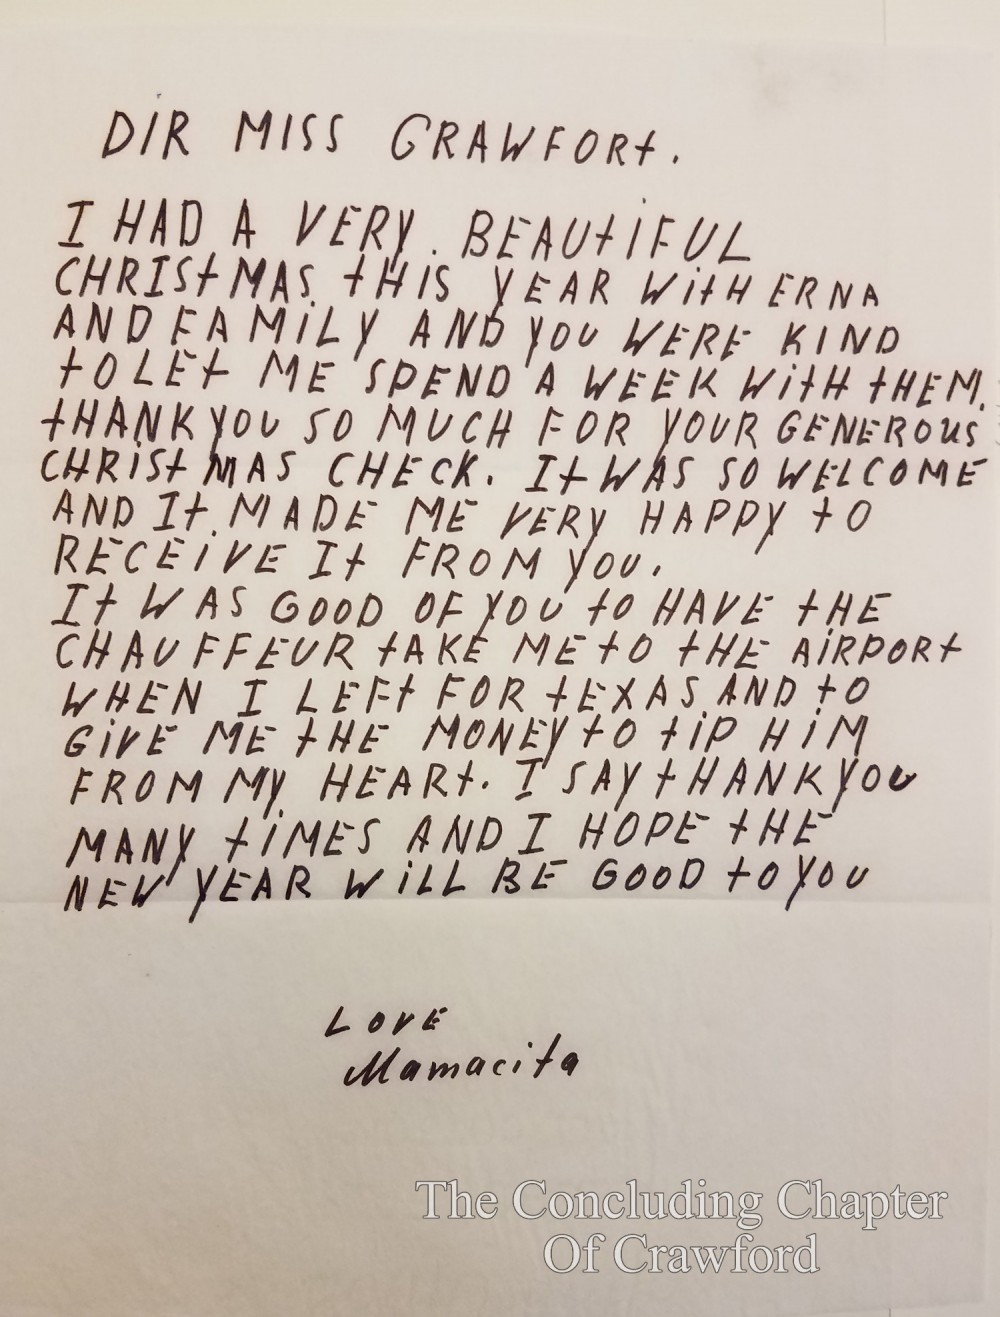 DIR MISS GRAWFORt.
I HAD A VERY. BEAUtiFUL
CHRIStMAS. tHIS YEAR WitH ERNA
AND FAMiLY AND YOU WERE KIND
tO LEt ME SPEND A WEEK WitH tHEM.
tHANK YOU SO MUCH FOR YOUR GENEROUS
CHRiSt MAS CHECK. It WAS SO WELCOME
AND It MADE ME VERY HAPPY tO
RECEiVE It FROM YOU.
It WAS GOOD OF YOU tO HAVE tHE
CHAUFFEUR tAKE ME tO tHE AiRPORt
WHEN I LEFt FOR tEXAS AND tO
GiVE ME tHE MONEY tO tiP HiM
FROM MY HEARt. I SAY tHANK YOU
MANY tiMES AND I HOPE tHE
NEW YEAR WiLL BE GOOD tO YOU
LOVE
Mamacita
The Concluding Chapter
Of Crawford